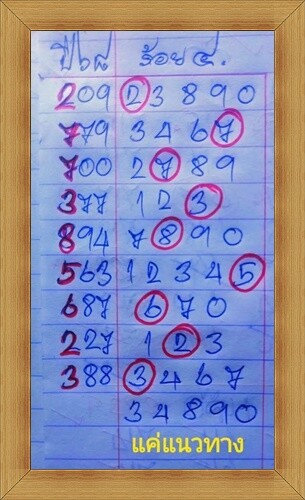 ปี๖๘ ร้อย ๔.
209 2 3 8 9 0
779 3 4 6 7
700 2 7 8 9
377 1 2 3
894 7 8 9 0
563 1 2 3 4 5
687 6 7 0
227 1 2 3
388 3 4 6 7
3 4 8 9 0
แค่แนวทาง